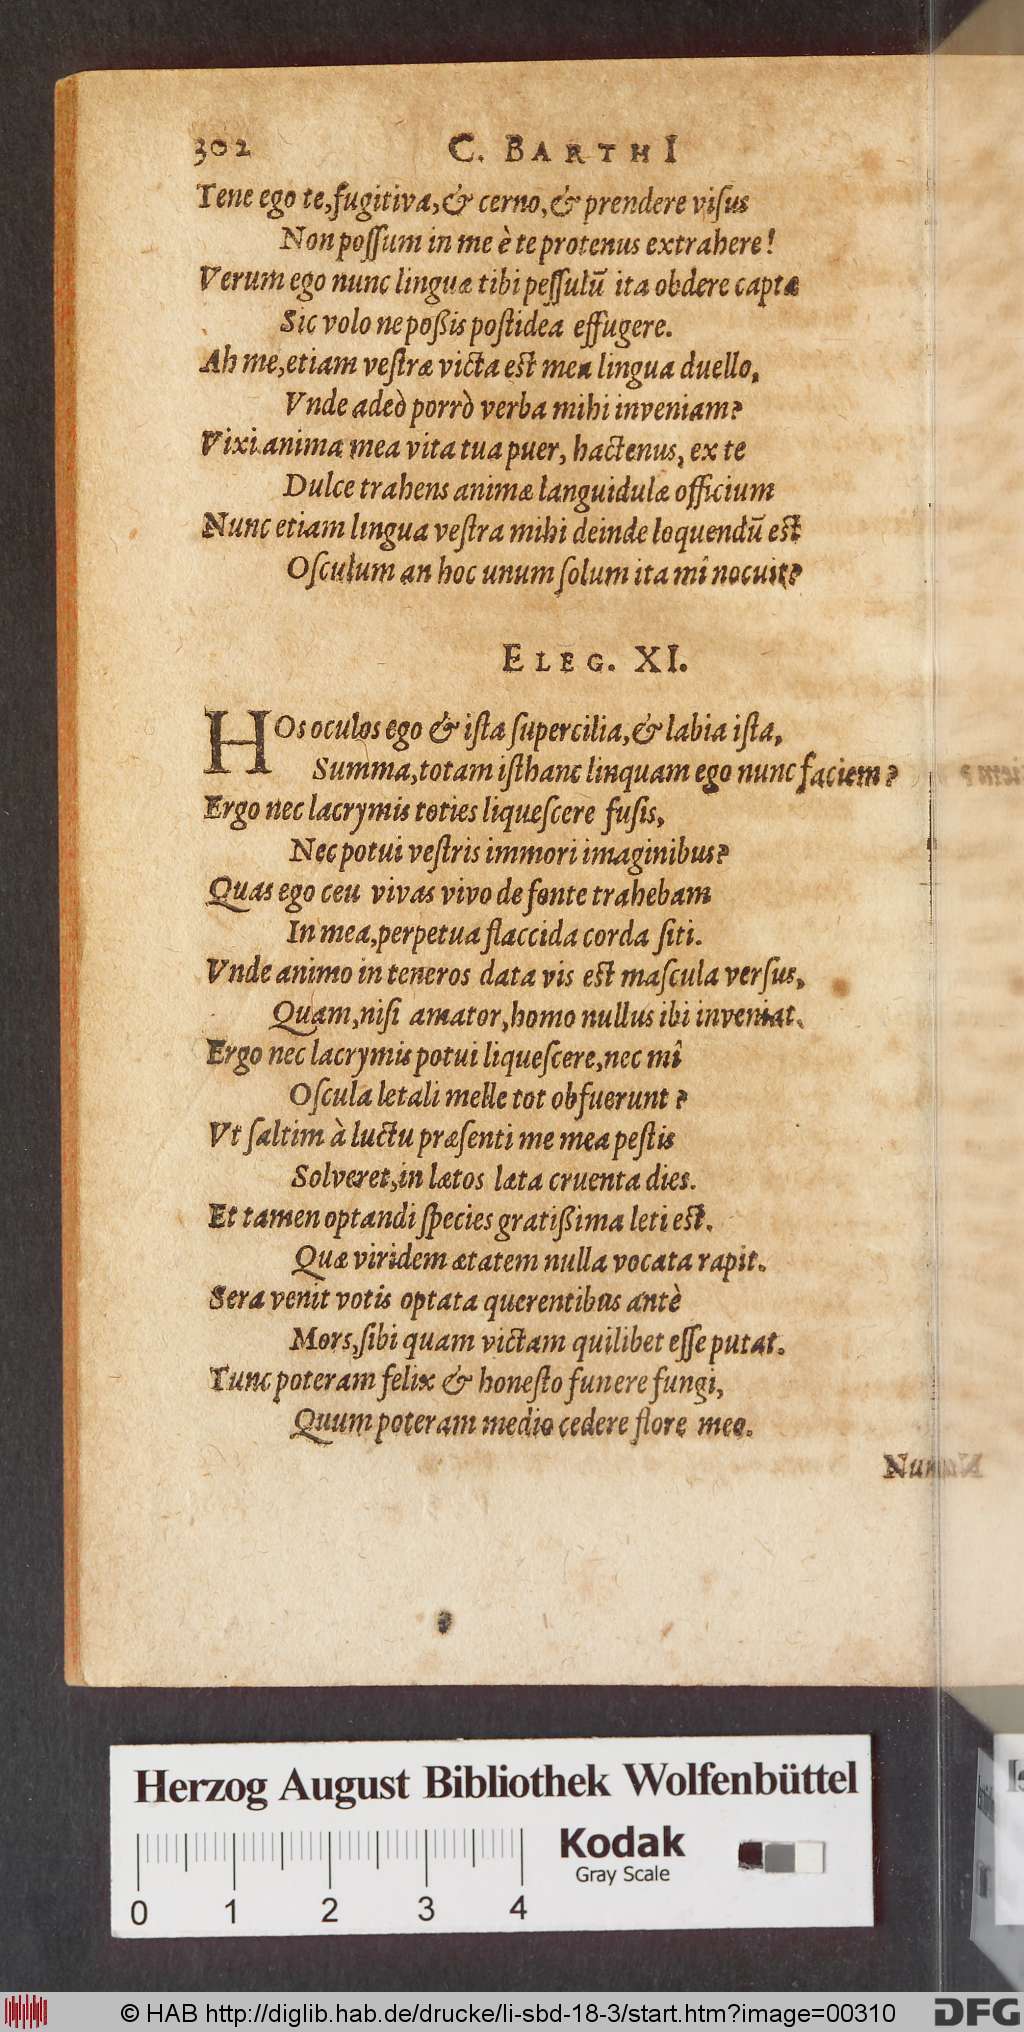 302 C. BARTHI
Tene ego te, fugitiva, & cerno, & prendere visus
Non possum in me è te protenus extrahere!
Verum ego nunc linguæ tibi pessulū ita obdere captæ
Sic volo ne poßis postidea effugere.
Ah me, etiam vestræ victa est mea lingua duello,
Vnde adeò porrò verba mihi inveniam?
Vixi anima mea vita tua puer, hactenus, ex te
Dulce trahens animæ languidulæ officium
Nunc etiam lingua vestra mihi deinde loquendū est
Osculum an hoc unum solum ita mî nocuit?
ELEG. XI.
HOs oculos ego & ista supercilia, & labia ista,
Summa, totam isthanc linquam ego nunc faciem?
Ergo nec lacrymis toties liquescere fusis,
Nec potui vestris immori imaginibus?
Quas ego ceu vivas vivo de fonte trahebam
In mea, perpetua flaccida corda siti.
Vnde animo in teneros data vis est mascula versus,
Quam, nisi amator, homo nullus ibi inveniat.
Ergo nec lacrymis potui liquescere, nec mî
Oscula letali melle tot obfuerunt?
Vt saltim à luctu præsenti me mea pestis
Solveret, in lætos læta cruenta dies.
Et tamen optandi species gratißima leti est.
Quæ viridem ætatem nulla vocata rapit.
Sera venit votis optata querentibus antè
Mors, sibi quam victam quilibet esse putat.
Tunc poteram felix & honesto funere fungi,
Quum poteram medio cedere flore meo.
Herzog August Bibliothek Wolfenbüttel
Kodak
Gray Scale
0 1 2 3 4
© HAB http://diglib.hab.de/drucke/li-sbd-18-3/start.htm?image=00310
DFG